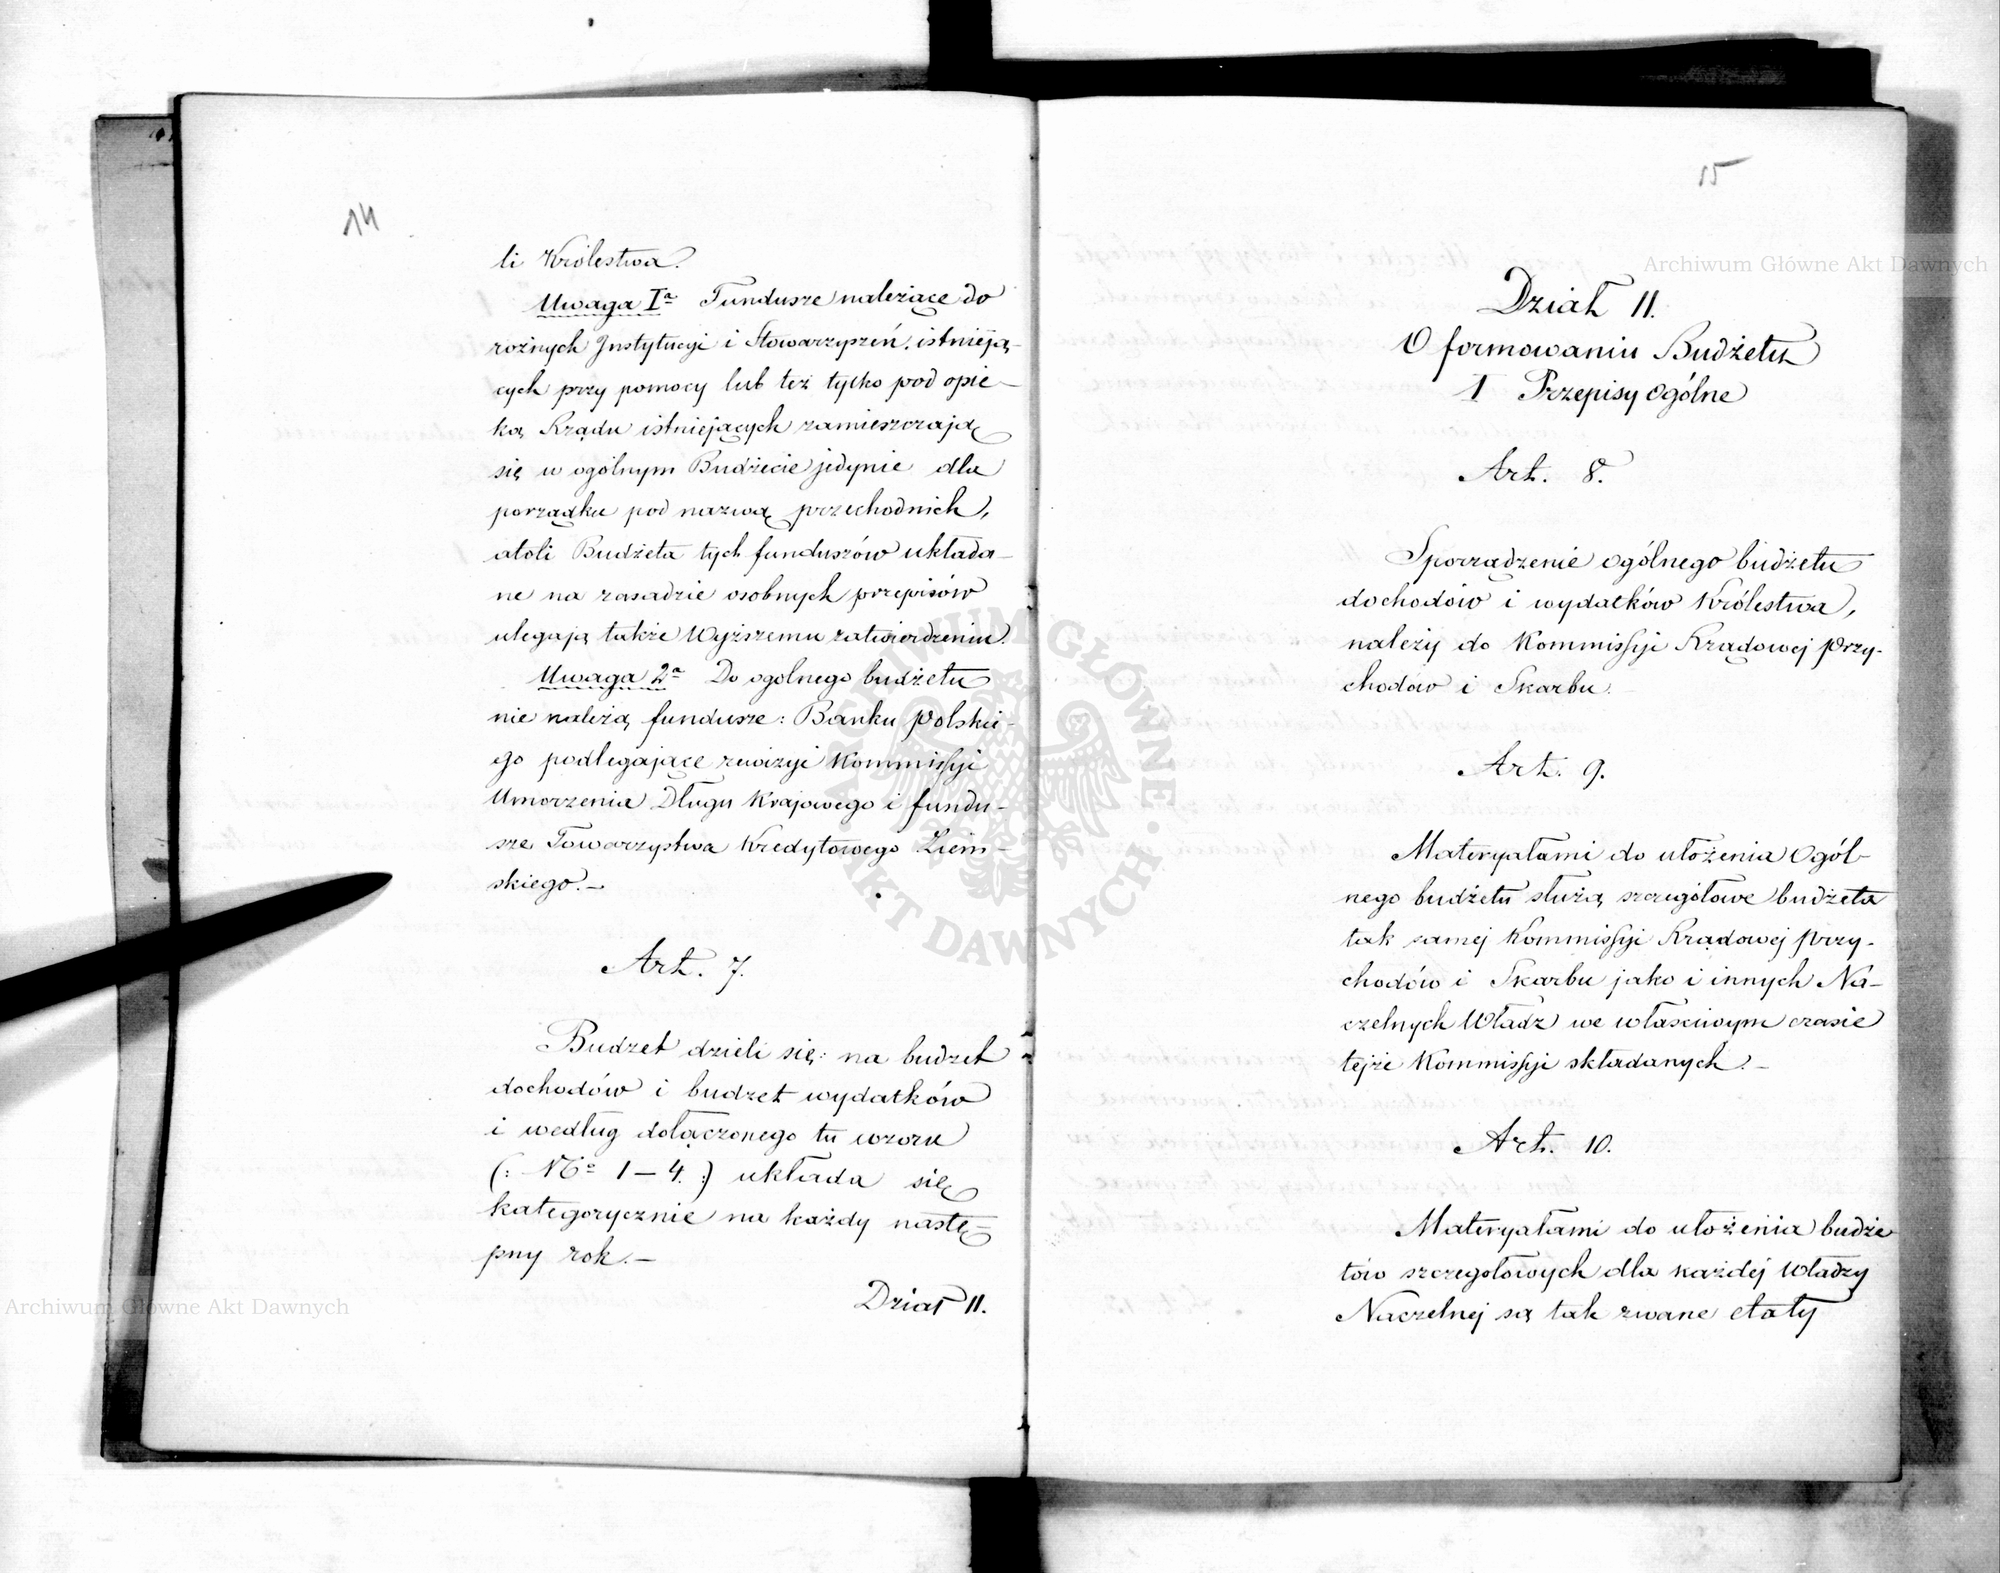 14
li Królestwa.
Uwaga Iª Fundusze należące do
rożnych Instytucyi i Stowarzyszeń istnieją-
cych przy pomocy lub też tylko pod opie-
ką Rządu istniejących zamieszczają
się w ogólnym Budżecie jedynie dla
porządku pod nazwą przechodnich,
atoli Budżeta tych funduszów układa-
ne na zasadzie osobnych przepisów
ulegają także Wyższemu zatwierdzeniu.
Uwaga 2ª Do ogolnego budżetu
nie należą fundusze: Banku Polskie-
go podlegające rewizyi Kommissyi
Umorzenia Długu Krajowego i fundu-
sze Towarzystwa Kredytowego Ziem-
skiego.-
Art. 7.
Budzet dzieli się: na budzet
dochodów i budzet wydatków
i według dołączonego tu wzoru
(: No 1-4. :) układa się
kategorycznie na każdy nastę-
pny rok.-
Dział II.
15
Dział II.
O formowaniu Budżetu
I Przepisy Ogólne
Art. 8.
Sporządzenie ogólnego budżetu
dochodów i wydatków Królestwa,
należy do Kommissyi Rządowej Przy-
chodów i Skarbu.-
Art. 9.
Materyałami do ułożenia Ogól-
nego budżetu służą szczegółowe budżeta
tak samej Kommissyi Rządowej Przy-
chodów i Skarbu jako i innych Na-
czelnych Władz we właściwym czasie
tejże Kommissyi składanych.-
Art. 10.
Materyałami do ułożenia budże
tów szczegołowych dla każdéj Władzy
Naczelnej są tak zwane etaty
Archiwum Główne Akt Dawnych
Archiwum Główne Akt Dawnych
ARCHIWUM GŁÓWNE AKT DAWNYCH